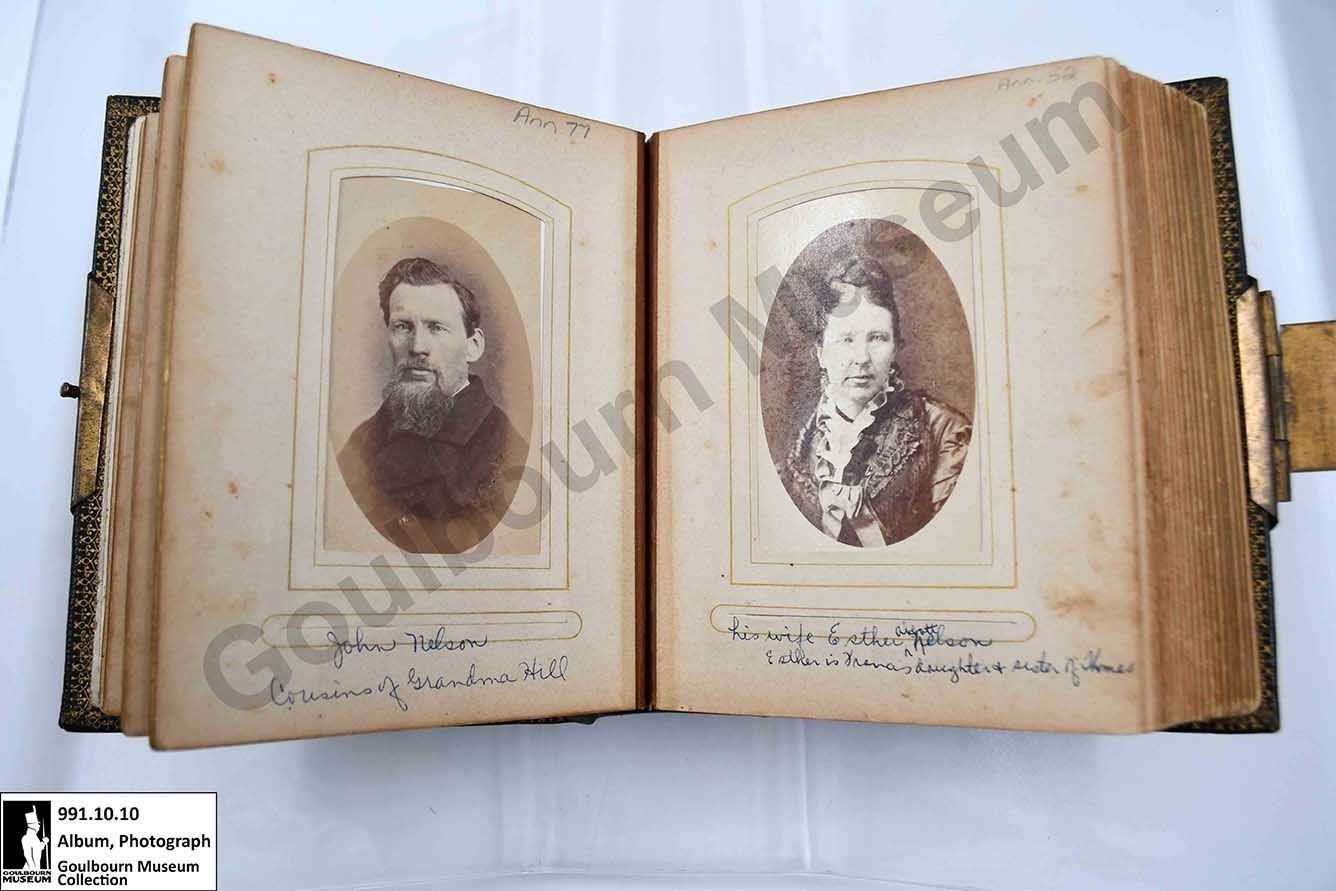 Ann 77
John Nelson
Cousins of Grandma Hill
Ann 32
his wife Esther Nelson
Esther is daughter & sister of Thomas
Goulbourn Museum
991.10.10
Album, Photograph
Goulbourn Museum
Collection
GOULBOURN
MUSEUM